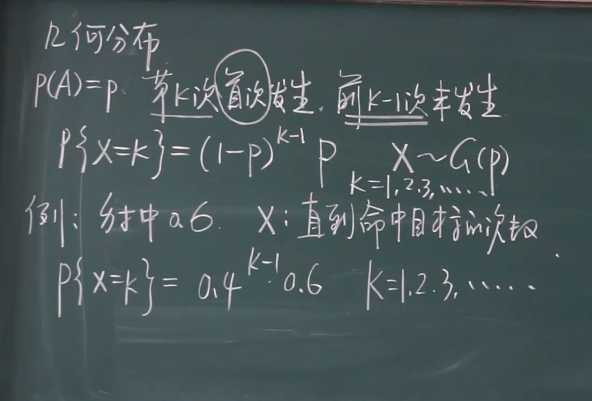 几何分布
P(A)=p. 第k次首次发生,前k-1次未发生
P{X=k}=(1-p)^{k-1} p X~G(p)
k=1,2,3,……
例:射中0.6. X:直到命中目标的次数.
P{X=k}=0.4^{k-1}·0.6 k=1,2,3,……